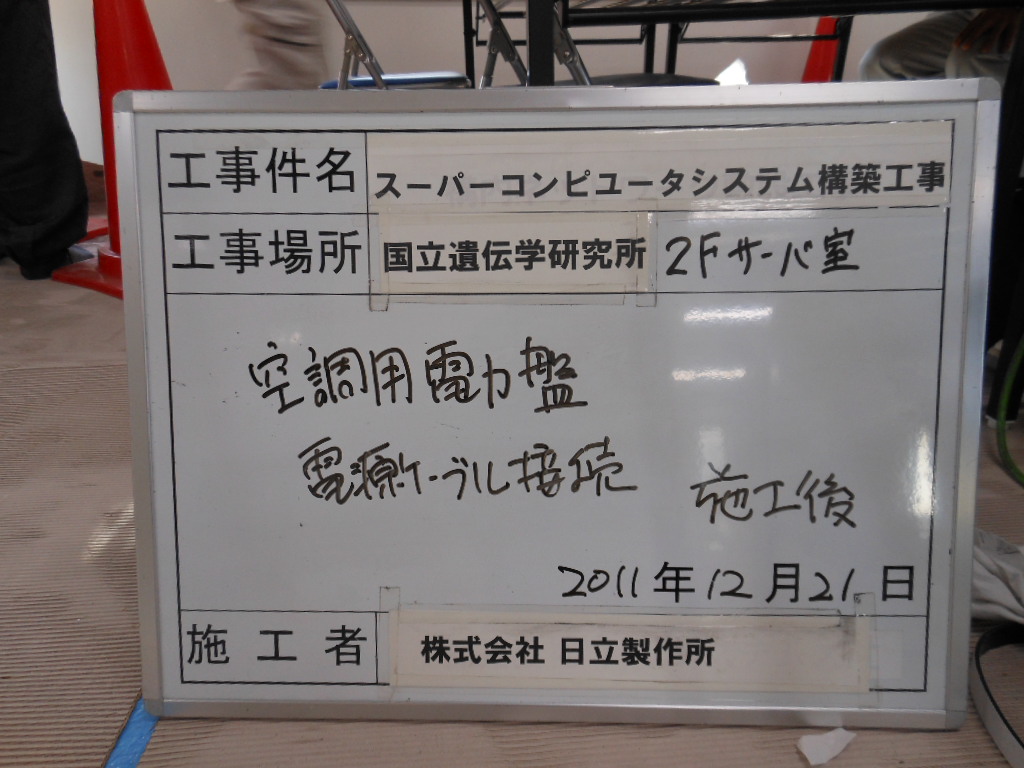 工事件名 スーパーコンピュータシステム構築工事
工事場所 国立遺伝学研究所 2Fサーバ室
空調用電力盤
電源ケーブル接続 施工後
2011年12月21日
施工者 株式会社 日立製作所